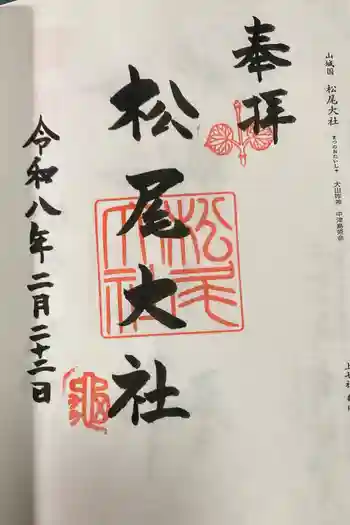 山城国 松尾大社
まつのおたいしゃ
大山咋神 中津島姫命
奉拝
松尾大社
松尾大社
令和八年二月二十二日